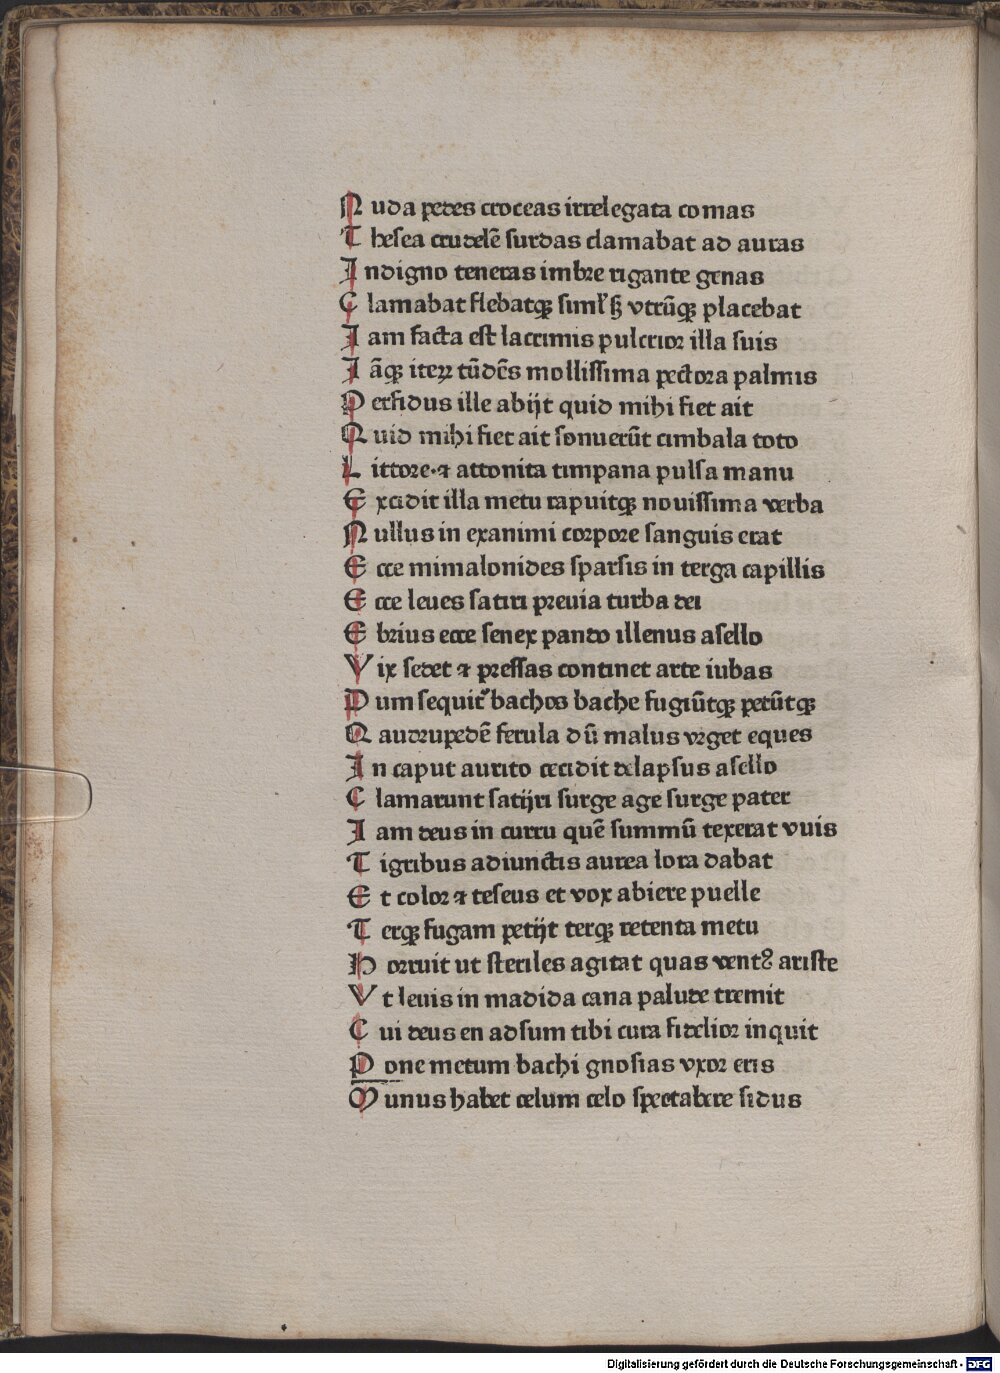 N uda pedes croceas irrelegata comas
T hesea crudelē surdas clamabat ad auras
I ndigno teneras imbre rigante genas
C lamabat flebatqꝫ siml' sꝫ vtrūqꝫ placebat
I am facta est lacrimis pulcrior illa suis
I āqꝫ iteꝝ tūdēs mollissima pectora palmis
P erfidus ille abijt quid mihi fiet ait
Q uid mihi fiet ait sonuerūt cimbala toto
L ittore·⁊ attonita timpana pulsa manu
E xcidit illa metu rapuitqꝫ nouissima verba
N ullus in exanimi corpore sanguis erat
E cce mimalonides sparsis in terga capillis
E cce leues satiri preuia turba dei
E brius ecce senex pando illenus asello
V ix sedet ⁊ pressas continet arte iubas
D um sequit᷑ bachos bache fugiūtqꝫ petūtqꝫ
Q audrupedē ferula dū malus vrget eques
I n caput aurito cecidit delapsus asello
C lamarunt satijri surge age surge pater
I am deus in curru quē summū texerat vuis
T igribus adiunctis aurea lora dabat
E t color ⁊ teseus et vox abiere puelle
T erqꝫ fugam petijt terqꝫ retenta metu
H orruit ut steriles agitat quas ventꝰ ariste
V t leuis in madida cana palude tremit
C ui deus en adsum tibi cura fidelior inquit
P one metum bachi gnosias vxor eris
M unus habet celum celo spectabere sidus
Digitalisierung gefördert durch die Deutsche Forschungsgemeinschaft - DFG